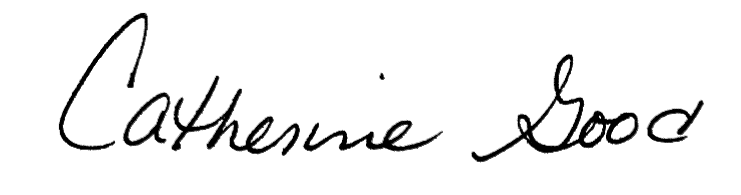 Catherine Good